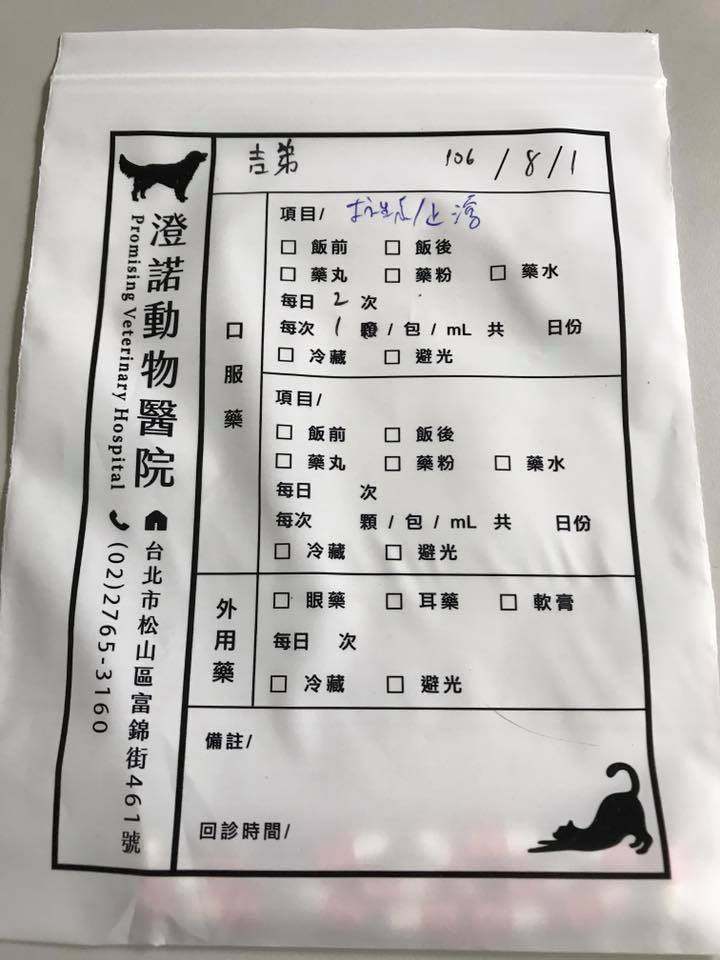 吉弟 106/8/1
澄諾動物醫院
Promising Veterinary Hospital
台北市松山區富錦街461號
(02)2765-3160
口服藥
項目/ 抗生素/止瀉
□ 飯前 □ 飯後
□ 藥丸 □ 藥粉 □ 藥水
每日 2 次
每次 1 顆 / 包 / mL 共 日份
□ 冷藏 □ 避光
項目/
□ 飯前 □ 飯後
□ 藥丸 □ 藥粉 □ 藥水
每日 次
每次 顆 / 包 / mL 共 日份
□ 冷藏 □ 避光
外用藥
□ 眼藥 □ 耳藥 □ 軟膏
每日 次
□ 冷藏 □ 避光
備註/
回診時間/